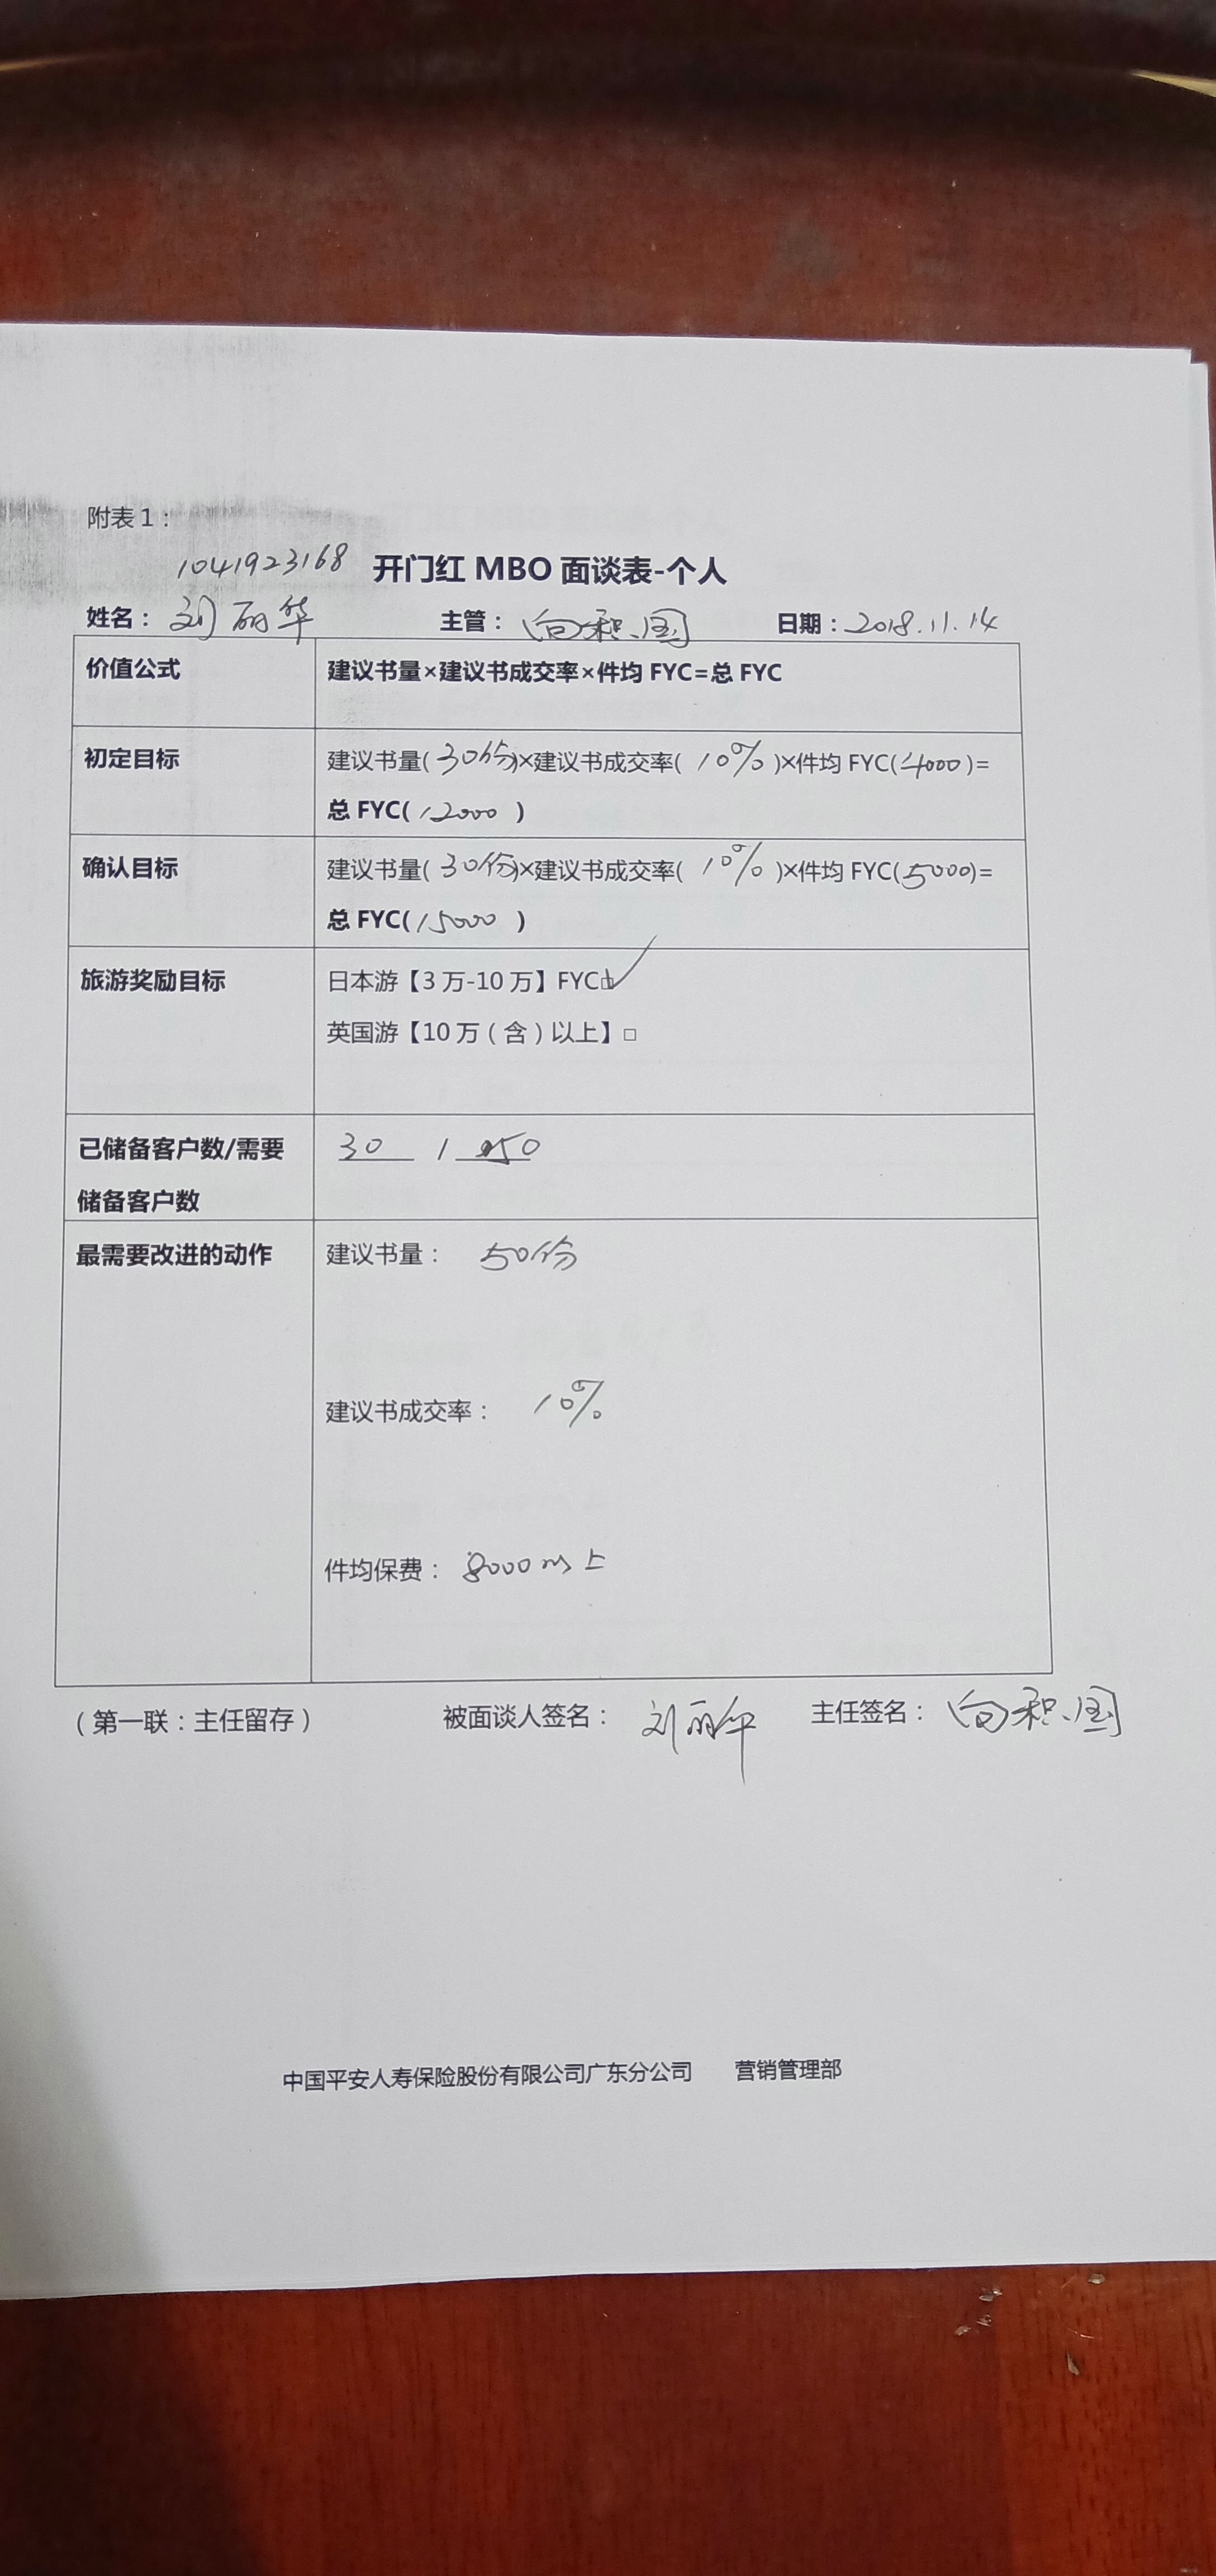 附表1：
1041923168 开门红 MBO 面谈表-个人
姓名：刘丽华 主管：向积国 日期：2018.11.14
价值公式 建议书量×建议书成交率×件均 FYC=总 FYC
初定目标 建议书量(30份)×建议书成交率(10%)×件均 FYC(4000)=
总 FYC(12000)
确认目标 建议书量(30份)×建议书成交率(10%)×件均 FYC(5000)=
总 FYC(15000)
旅游奖励目标 日本游【3万-10万】FYC□✓
英国游【10万（含）以上】□
已储备客户数/需要 30 / 50
储备客户数
最需要改进的动作 建议书量：50份
建议书成交率：10%
件均保费：8000以上
（第一联：主任留存） 被面谈人签名：刘丽华 主任签名：向积国
中国平安人寿保险股份有限公司广东分公司 营销管理部